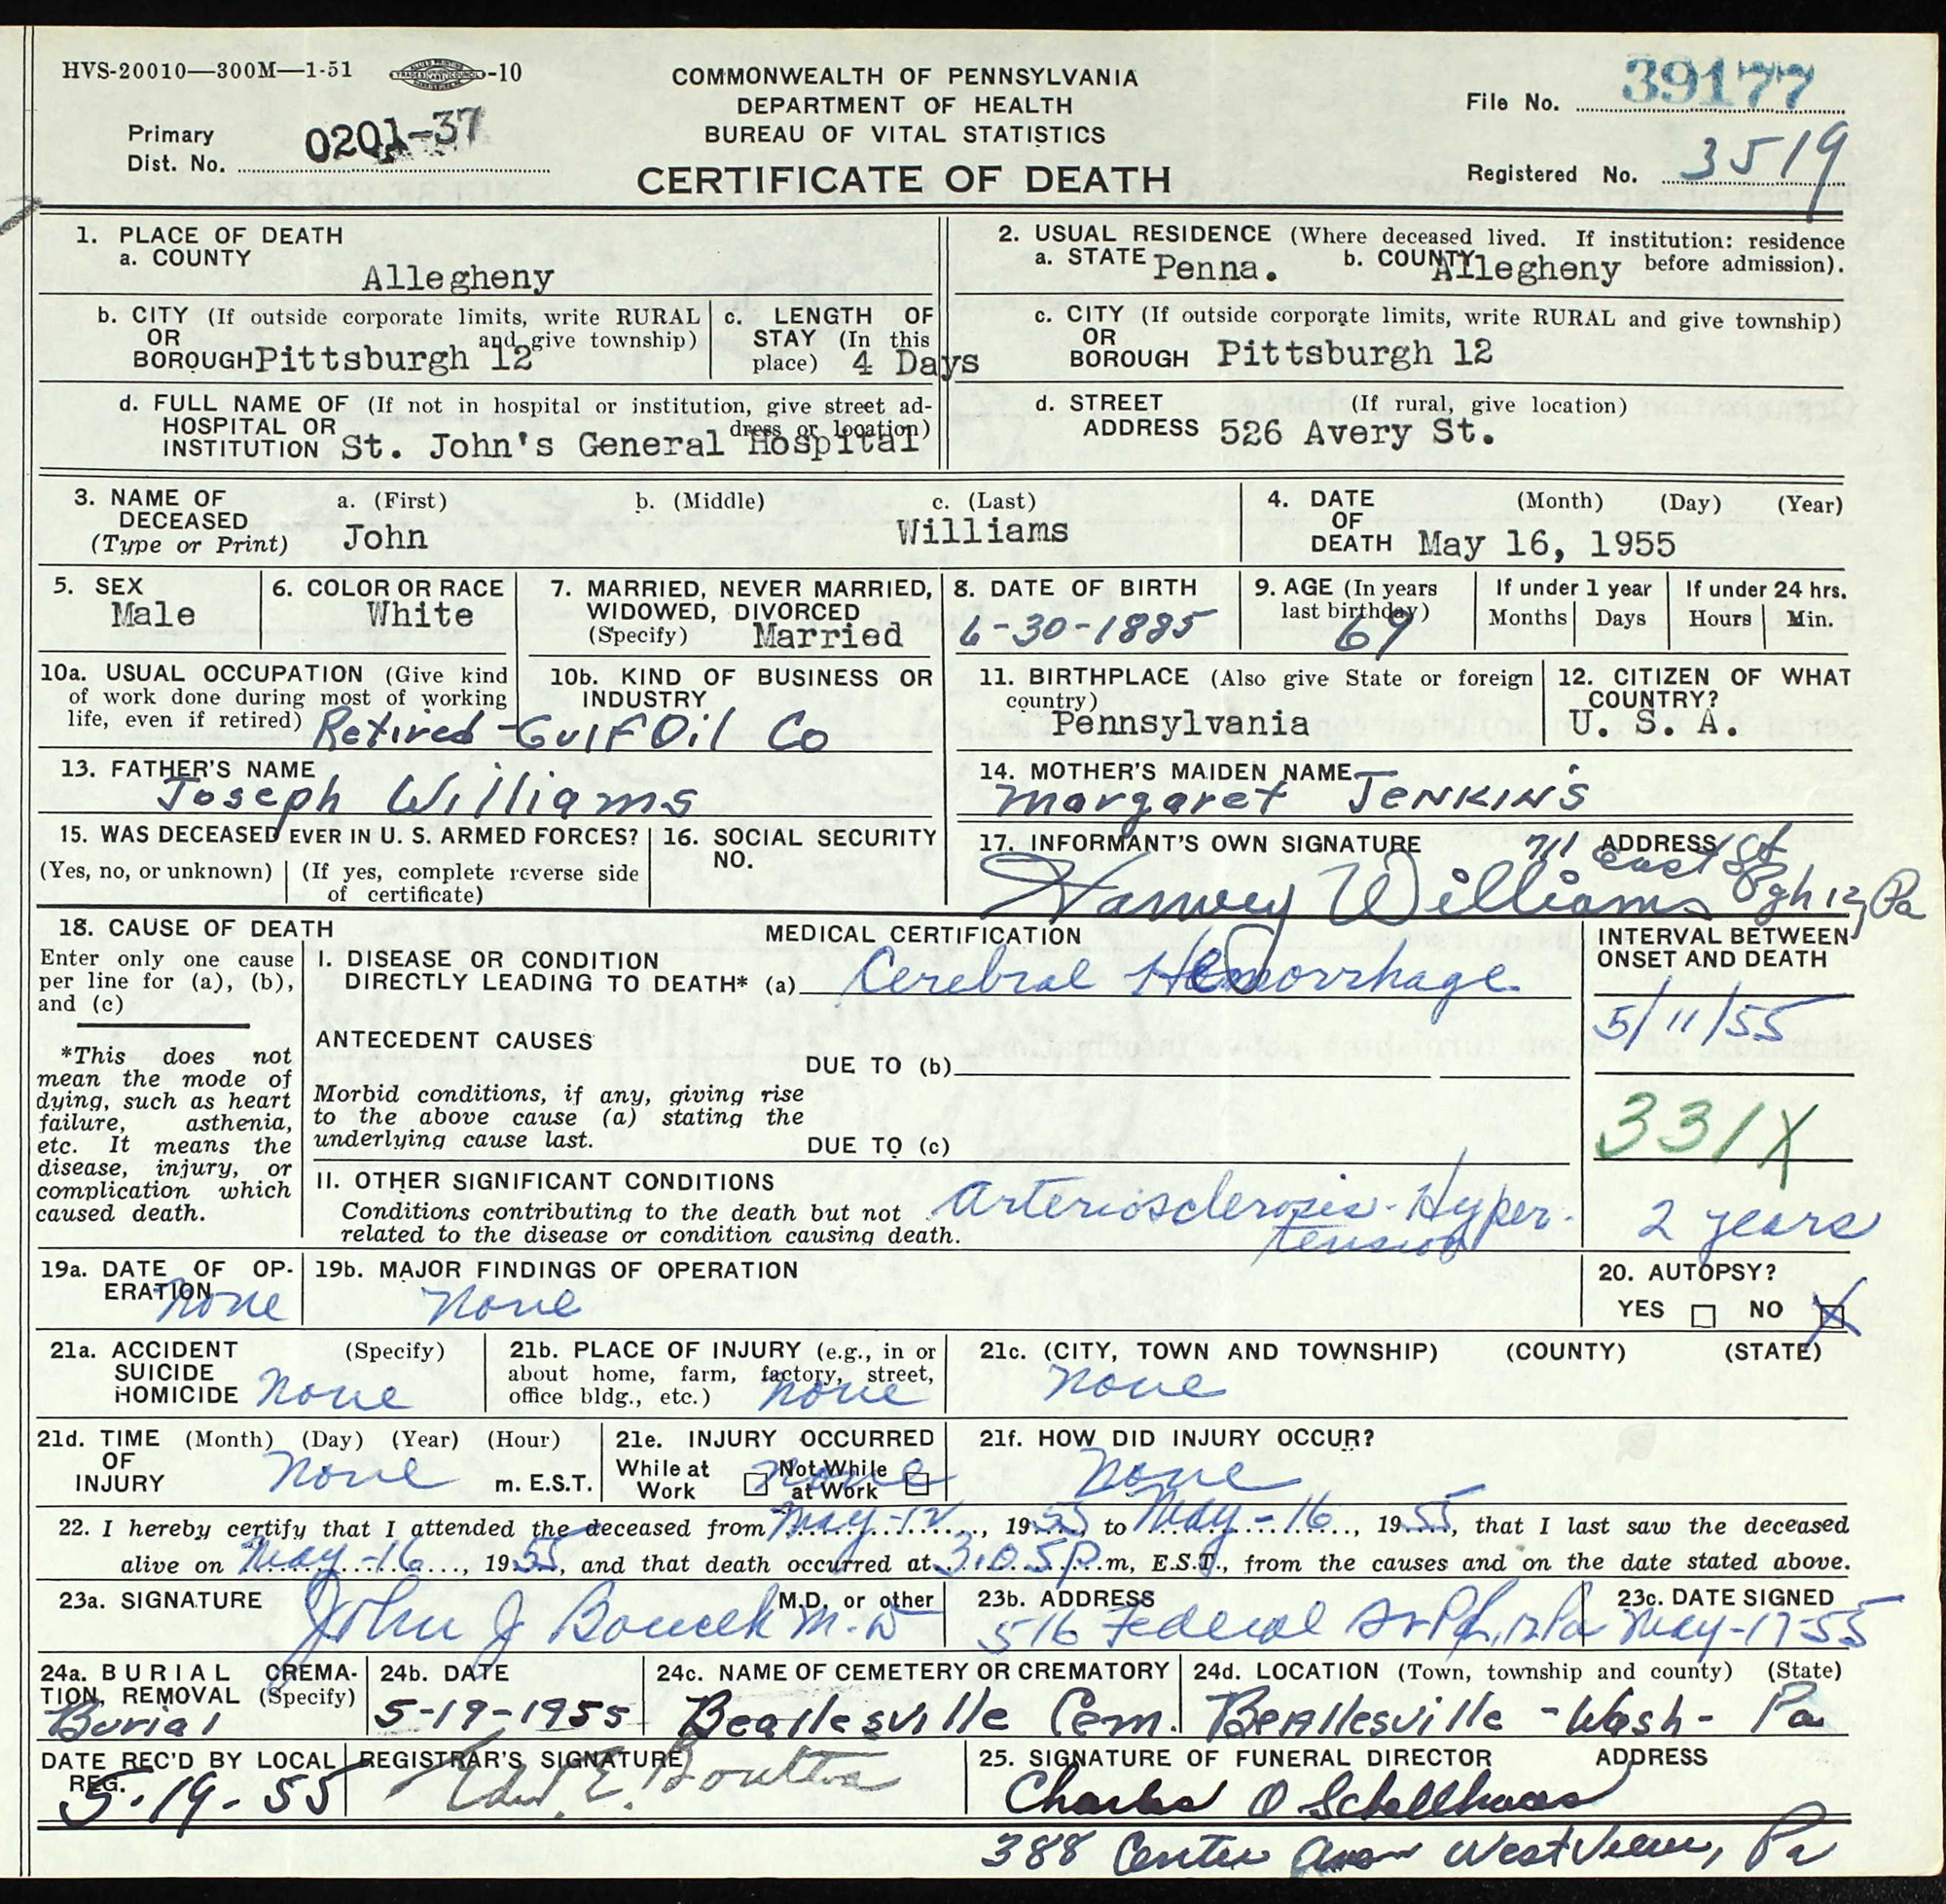 HVS-20010—300M—1-51 -10
COMMONWEALTH OF PENNSYLVANIA
DEPARTMENT OF HEALTH
BUREAU OF VITAL STATISTICS
CERTIFICATE OF DEATH
Primary
Dist. No. 0201-37
File No. 39177
Registered No. 3519
1. PLACE OF DEATH
a. COUNTY
Allegheny
b. CITY (If outside corporate limits, write RURAL
OR and give township)
BOROUGH Pittsburgh 12
c. LENGTH OF
STAY (In this
place) 4 Days
d. FULL NAME OF (If not in hospital or institution, give street ad-
HOSPITAL OR dress or location)
INSTITUTION St. John's General Hospital
2. USUAL RESIDENCE (Where deceased lived. If institution: residence
a. STATE Penna. b. COUNTY Allegheny before admission).
c. CITY (If outside corporate limits, write RURAL and give township)
OR
BOROUGH Pittsburgh 12
d. STREET (If rural, give location)
ADDRESS 526 Avery St.
3. NAME OF a. (First) b. (Middle) c. (Last)
DECEASED
(Type or Print) John Williams
4. DATE (Month) (Day) (Year)
OF
DEATH May 16, 1955
5. SEX
Male
6. COLOR OR RACE
White
7. MARRIED, NEVER MARRIED,
WIDOWED, DIVORCED
(Specify) Married
8. DATE OF BIRTH
6-30-1885
9. AGE (In years
last birthday)
69
If under 1 year
Months Days
If under 24 hrs.
Hours Min.
10a. USUAL OCCUPATION (Give kind
of work done during most of working
life, even if retired) Retired-
10b. KIND OF BUSINESS OR
INDUSTRY
Gulf Oil Co
11. BIRTHPLACE (Also give State or foreign
country)
Pennsylvania
12. CITIZEN OF WHAT
COUNTRY?
U. S. A.
13. FATHER'S NAME
Joseph Williams
14. MOTHER'S MAIDEN NAME
Margaret Jenkins
15. WAS DECEASED EVER IN U. S. ARMED FORCES?
(Yes, no, or unknown) (If yes, complete reverse side
of certificate)
16. SOCIAL SECURITY
NO.
17. INFORMANT'S OWN SIGNATURE ADDRESS
711 East St
Harvey Williams Pgh 12, Pa
18. CAUSE OF DEATH
Enter only one cause
per line for (a), (b),
and (c)
*This does not
mean the mode of
dying, such as heart
failure, asthenia,
etc. It means the
disease, injury, or
complication which
caused death.
MEDICAL CERTIFICATION
I. DISEASE OR CONDITION
DIRECTLY LEADING TO DEATH* (a) Cerebral Hemorrhage
ANTECEDENT CAUSES
DUE TO (b)
Morbid conditions, if any, giving rise
to the above cause (a) stating the
underlying cause last.
DUE TO (c)
II. OTHER SIGNIFICANT CONDITIONS
Conditions contributing to the death but not
related to the disease or condition causing death.
Arteriosclerosis - Hyper-
tension
INTERVAL BETWEEN
ONSET AND DEATH
5/11/55
331X
2 years
19a. DATE OF OP-
ERATION
none
19b. MAJOR FINDINGS OF OPERATION
none
20. AUTOPSY?
YES NO X
21a. ACCIDENT (Specify)
SUICIDE
HOMICIDE none
21b. PLACE OF INJURY (e.g., in or
about home, farm, factory, street,
office bldg., etc.) none
21c. (CITY, TOWN AND TOWNSHIP) (COUNTY) (STATE)
none
21d. TIME (Month) (Day) (Year) (Hour)
OF
INJURY none m. E.S.T.
21e. INJURY OCCURRED
While at Not While
Work at Work
none
21f. HOW DID INJURY OCCUR?
none
22. I hereby certify that I attended the deceased from May-12, 1955, to May-16, 1955, that I last saw the deceased
alive on May-16, 1955, and that death occurred at 3:05 P.m, E.S.T., from the causes and on the date stated above.
23a. SIGNATURE M.D. or other
John J Boucek M.D
23b. ADDRESS
516 Federal St Pgh, 12 Pa
23c. DATE SIGNED
May-17-55
24a. BURIAL CREMA-
TION, REMOVAL (Specify)
Burial
24b. DATE
5-19-1955
24c. NAME OF CEMETERY OR CREMATORY
Beallesville Cem.
24d. LOCATION (Town, township and county) (State)
Beallesville - Wash - Pa
DATE REC'D BY LOCAL
REG.
5-19-55
REGISTRAR'S SIGNATURE
25. SIGNATURE OF FUNERAL DIRECTOR ADDRESS
Charles O Schellhaas
388 Center West View, Pa